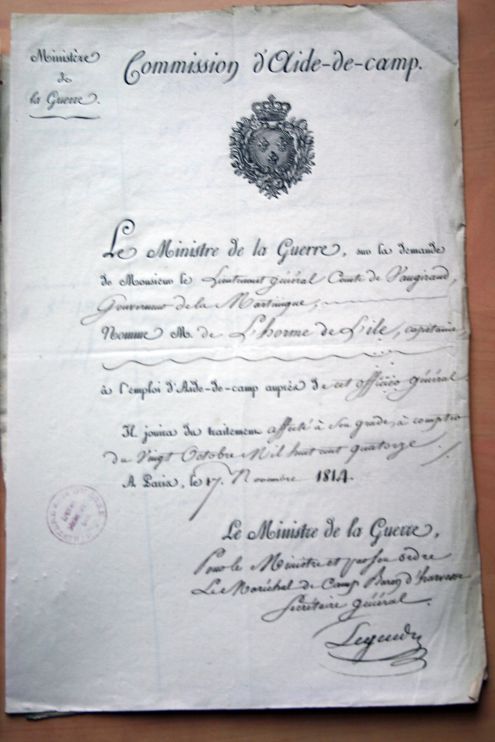 Ministère
de
la Guerre.
Commission d'Aide-de-camp.
Le Ministre de la Guerre, sur la demande
de Monsieur le Lieutenant général Comte de Vaugiraud,
Gouverneur de la Martinique,
Nomme M. de L'horme de L'ile, capitaine,
à l'emploi d'Aide-de-camp auprès de cet officier général
Il jouira du traitement affecté à son grade, à compter
du Vingt Octobre Mil huit cent quatorze.
A Paris, le 17 Novembre 1814.
Le Ministre de la Guerre,
Pour le Ministre et par son ordre
Le Maréchal de Camp Baron
Secrétaire général.